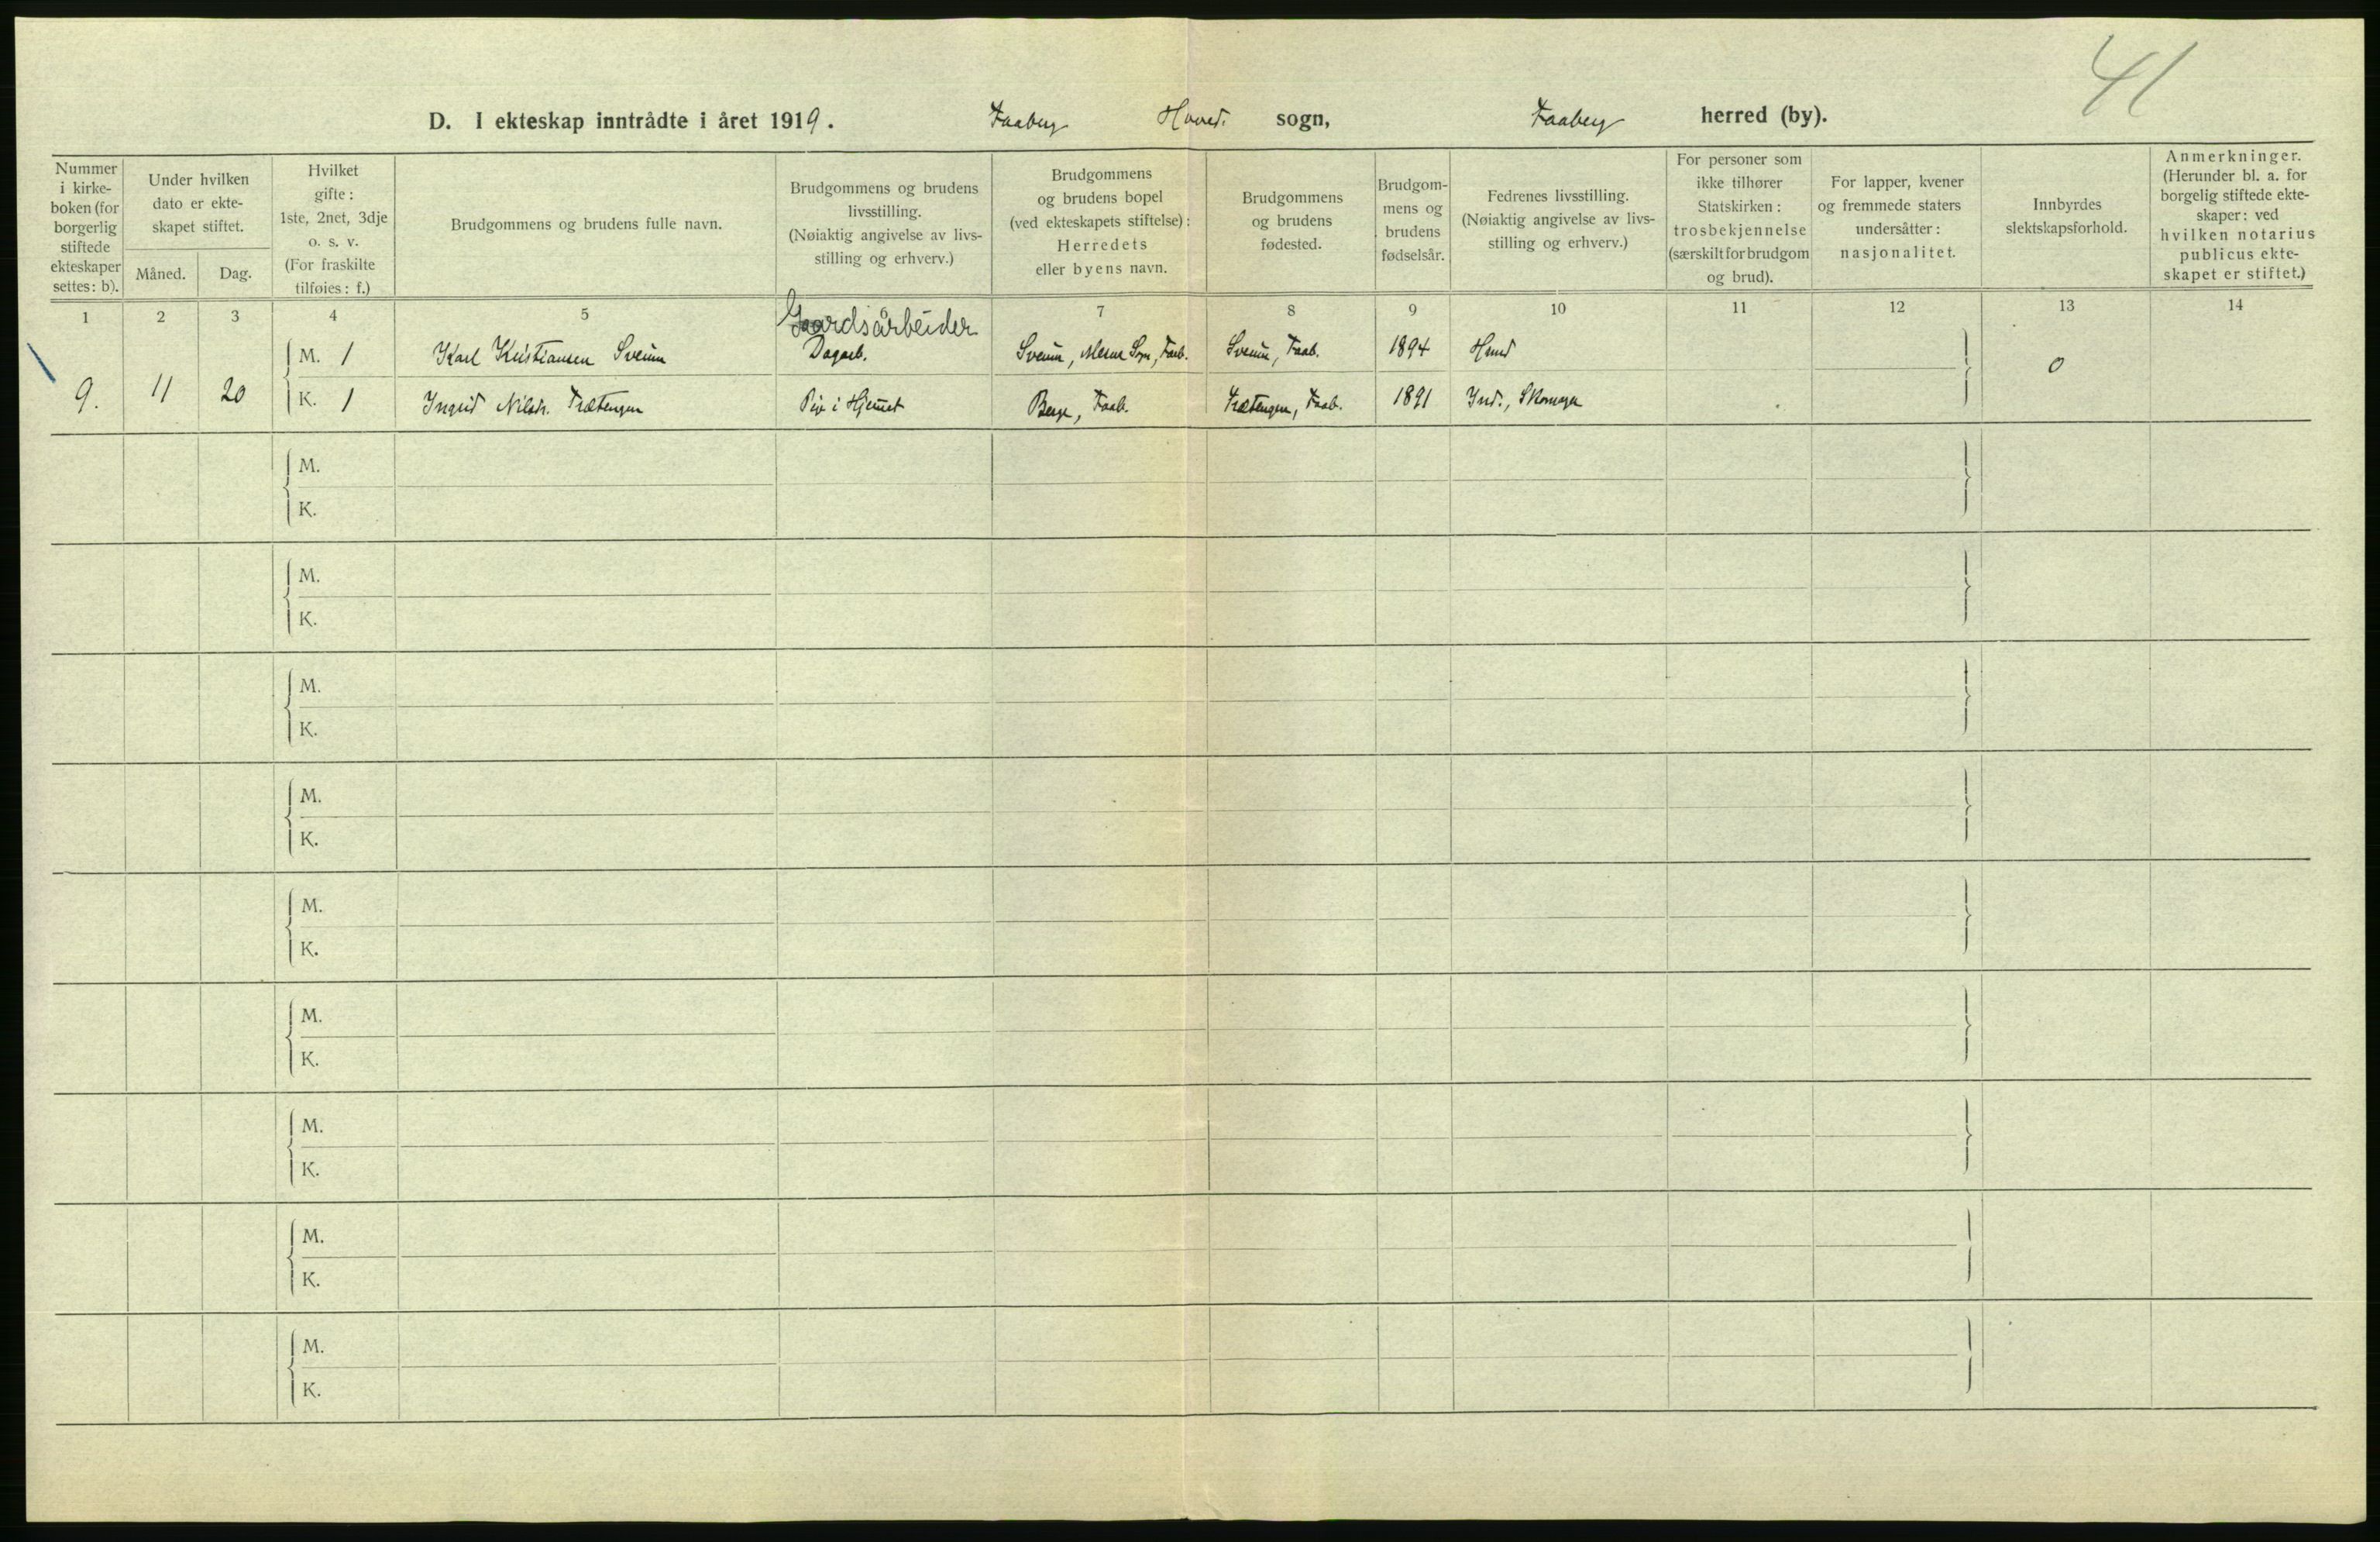 41
D. I ekteskap inntrådte i året 1919. Faaberg Hoved. sogn, Faaberg herred (by).
Nummer i kirke- boken (for borgerlig stiftede ekteskaper settes: b).
Under hvilken dato er ekte- skapet stiftet.
Måned. Dag.
Hvilket gifte: 1ste, 2net, 3dje o. s. v. (For fraskilte tilføies: f.)
Brudgommens og brudens fulle navn.
Brudgommens og brudens livsstilling. (Nøiaktig angivelse av livs- stilling og erhverv.)
Brudgommens og brudens bopel (ved ekteskapets stiftelse): Herredets eller byens navn.
Brudgommens og brudens fødested.
Brudgom- mens og brudens fødselsår.
Fedrenes livsstilling. (Nøiaktig angivelse av livs- stilling og erhverv.)
For personer som ikke tilhører Statskirken: trosbekjennelse (særskilt for brudgom og brud).
For lapper, kvener og fremmede staters undersåtter: nasjonalitet.
Innbyrdes slektskapsforhold.
Anmerkninger. (Herunder bl. a. for borgelig stiftede ekte- skaper: ved hvilken notarius publicus ekte- skapet er stiftet.)
1 2 3 4 5 6 7 8 9 10 11 12 13 14
Gaardsarbeider
M. 1 Karl Kristiansen Sveum Dagarb. Sveum, Mesna Sogn, Faab. Sveum, Faab. 1894 Hmd 0
9. 11 20 K. 1 Ingrid Nilsdr. Trætengen Pige i Hjemmet Berge, Faab. Trætengen, Faab. 1891 Ind., Skomager
M.
K.
M.
K.
M.
K.
M.
K.
M.
K.
M.
K.
M.
K.
M.
K.
M.
K.